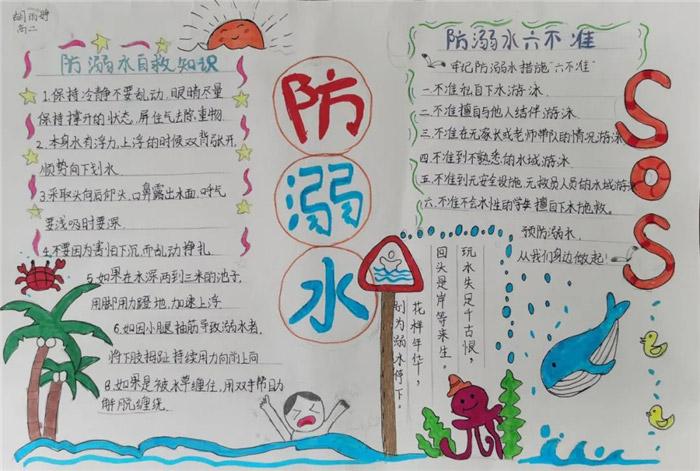 高二
防溺水自救知识
1.保持冷静不要乱动,眼睛尽量
保持撑开的状态,屏住气去除重物.
2.本身水有浮力,上浮的时候双背张开,
顺势向下划水.
3.采取头向后仰头,口鼻露出水面,呼气
要浅吸时要深.
4.不要因为害怕下沉,而乱动挣扎.
5.如果在水深两到三米的池子,
用脚用力蹬地,加速上浮.
6.如因小腿抽筋导致溺水者,
将下肢拇趾持续用力向前上向
8.如果是被水草缠住,用双手帮自助
解脱缠绕.
防
溺
水
防溺水六不准
牢记防溺水措施"六不准"
一.不准私自下水游泳.
二.不准擅自与他人结伴游泳.
三.不准在无家长或老师带队的情况游泳
四.不准到不熟悉的水域游泳.
五.不准到无安全设施,无救员人员的水域游泳
六.不准不会水性的学生擅自下水施救.
预防溺水,
从我们身边做起!
SOS
玩水失足千古恨,
回头是岸等来生.
花样年华,
别为溺水停下.